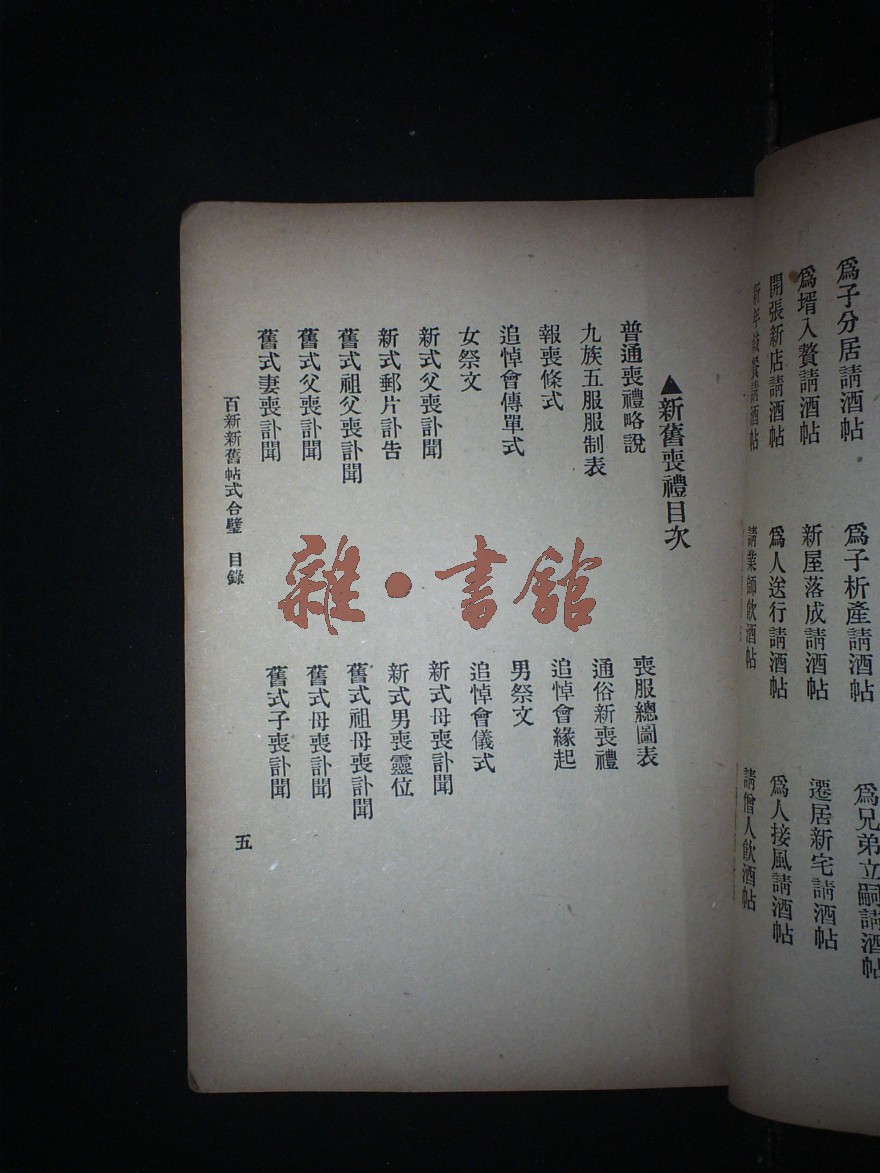 為子分居請酒帖
為子析產請酒帖
為兄弟立嗣請酒帖
為壻入贅請酒帖
新屋落成請酒帖
遷居新宅請酒帖
開張新店請酒帖
為人送行請酒帖
為人接風請酒帖
請業師飲酒帖
請僧人飲酒帖
▲新舊喪禮目次
普通喪禮略說
喪服總圖表
九族五服服制表
通俗新喪禮
報喪條式
追悼會緣起
追悼會傳單式
男祭文
女祭文
追悼會儀式
新式父喪訃聞
新式母喪訃聞
新式郵片訃告
新式男喪靈位
舊式祖父喪訃聞
舊式祖母喪訃聞
舊式父喪訃聞
舊式母喪訃聞
舊式妻喪訃聞
舊式子喪訃聞
百新新舊帖式合璧 目錄
五
雜·書館